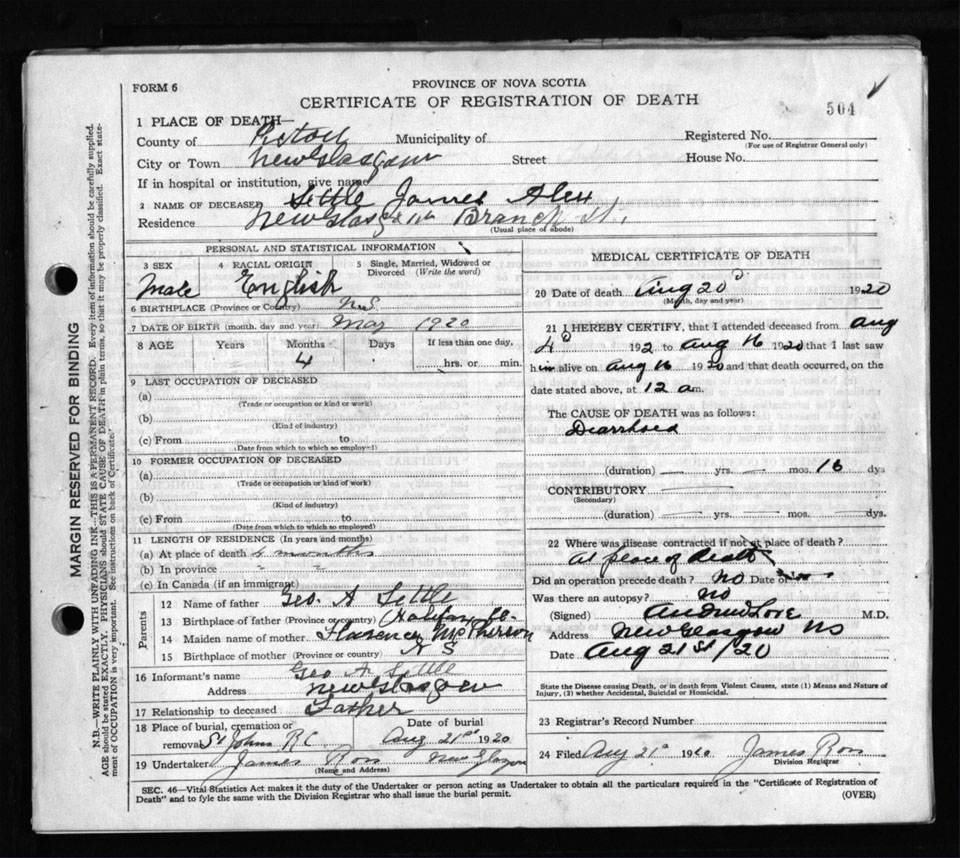 FORM 6
PROVINCE OF NOVA SCOTIA
CERTIFICATE OF REGISTRATION OF DEATH
504
1 PLACE OF DEATH—
County of Pictou Municipality of Registered No.
(For use of Registrar General only)
City or Town New Glasgow Street House No.
If in hospital or institution, give name
2 NAME OF DECEASED Settle James Alex
Residence New Glasgow Branch St.
(Usual place of abode)
PERSONAL AND STATISTICAL INFORMATION
3 SEX Male
4 RACIAL ORIGIN English
5 Single, Married, Widowed or Divorced (Write the word)
6 BIRTHPLACE (Province or Country) N.S
7 DATE OF BIRTH (month, day and year) May 1920
8 AGE Years Months Days If less than one day,
4 hrs. or min.
9 LAST OCCUPATION OF DECEASED
(a)
(Trade or occupation or kind of work)
(b)
(Kind of industry)
(c) From to
(Date from which to which so employed)
10 FORMER OCCUPATION OF DECEASED
(a)
(Trade or occupation or kind of work)
(b)
(Kind of industry)
(c) From to
(Date from which to which so employed)
11 LENGTH OF RESIDENCE (In years and months)
(a) At place of death 4 months
(b) In province " "
(c) In Canada (if an immigrant)
Parents
12 Name of father Geo. A Settle
13 Birthplace of father (Province or country) Halifax Co.
14 Maiden name of mother Florence McPherson
15 Birthplace of mother (Province or country) N S
16 Informant's name Geo A. Settle
Address New Glasgow
17 Relationship to deceased Father
18 Place of burial, cremation or removal St Johns RC
Date of burial Aug 21st 1920
19 Undertaker James Ross New Glasgow
(Name and Address)
MEDICAL CERTIFICATE OF DEATH
20 Date of death Aug 20 1920
(Month, day and year)
21 I HEREBY CERTIFY, that I attended deceased from Aug
4 192 to Aug 16 1920 that I last saw
him alive on Aug 16 1920 and that death occurred, on the
date stated above, at 12 a m.
The CAUSE OF DEATH was as follows:
Diarrhoea
(duration) — yrs. — mos. 16 dys
CONTRIBUTORY
(Secondary)
(duration) — yrs. — mos. — dys.
22 Where was disease contracted if not at place of death?
At place of Death
Did an operation precede death? no Date of
Was there an autopsy? no
(Signed) Andrew Love M.D.
Address New Glasgow NS
Date Aug 21st/20
State the Disease causing Death, or in death from Violent Causes, state (1) Means and Nature of
Injury, (2) whether Accidental, Suicidal or Homicidal.
23 Registrar's Record Number
24 Filed Aug 21st 1920 James Ross
Division Registrar
SEC. 46—Vital Statistics Act makes it the duty of the Undertaker or person acting as Undertaker to obtain all the particulars required in the "Certificate of Registration of
Death" and to fyle the same with the Division Registrar who shall issue the burial permit.
(OVER)
MARGIN RESERVED FOR BINDING
N.B.—WRITE PLAINLY WITH UNFADING INK—THIS IS A PERMANENT RECORD. Every item of information should be carefully supplied.
AGE should be stated EXACTLY. PHYSICIANS should STATE CAUSE OF DEATH in plain terms, so that it may be properly classified. Exact state-
ment of OCCUPATION is very important. See instructions on back of Certificate.